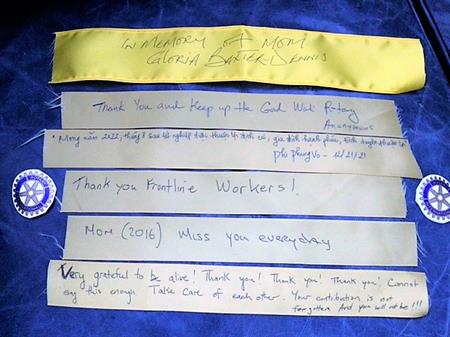 IN MEMORY OF MOM
GLORIA BAXTER-DENNIS
Thank You and Keep up the Good Work Rotary
Anonymous
phi phung vo - 12/21/21
Thank you Frontline Workers!
MOM (2016) Miss you everyday
Very grateful to be alive! Thank you! Thank you! Thank you! Cannot
say this enough Take Care of each other. Your contribution is not
forgotten. And you will not be!!!